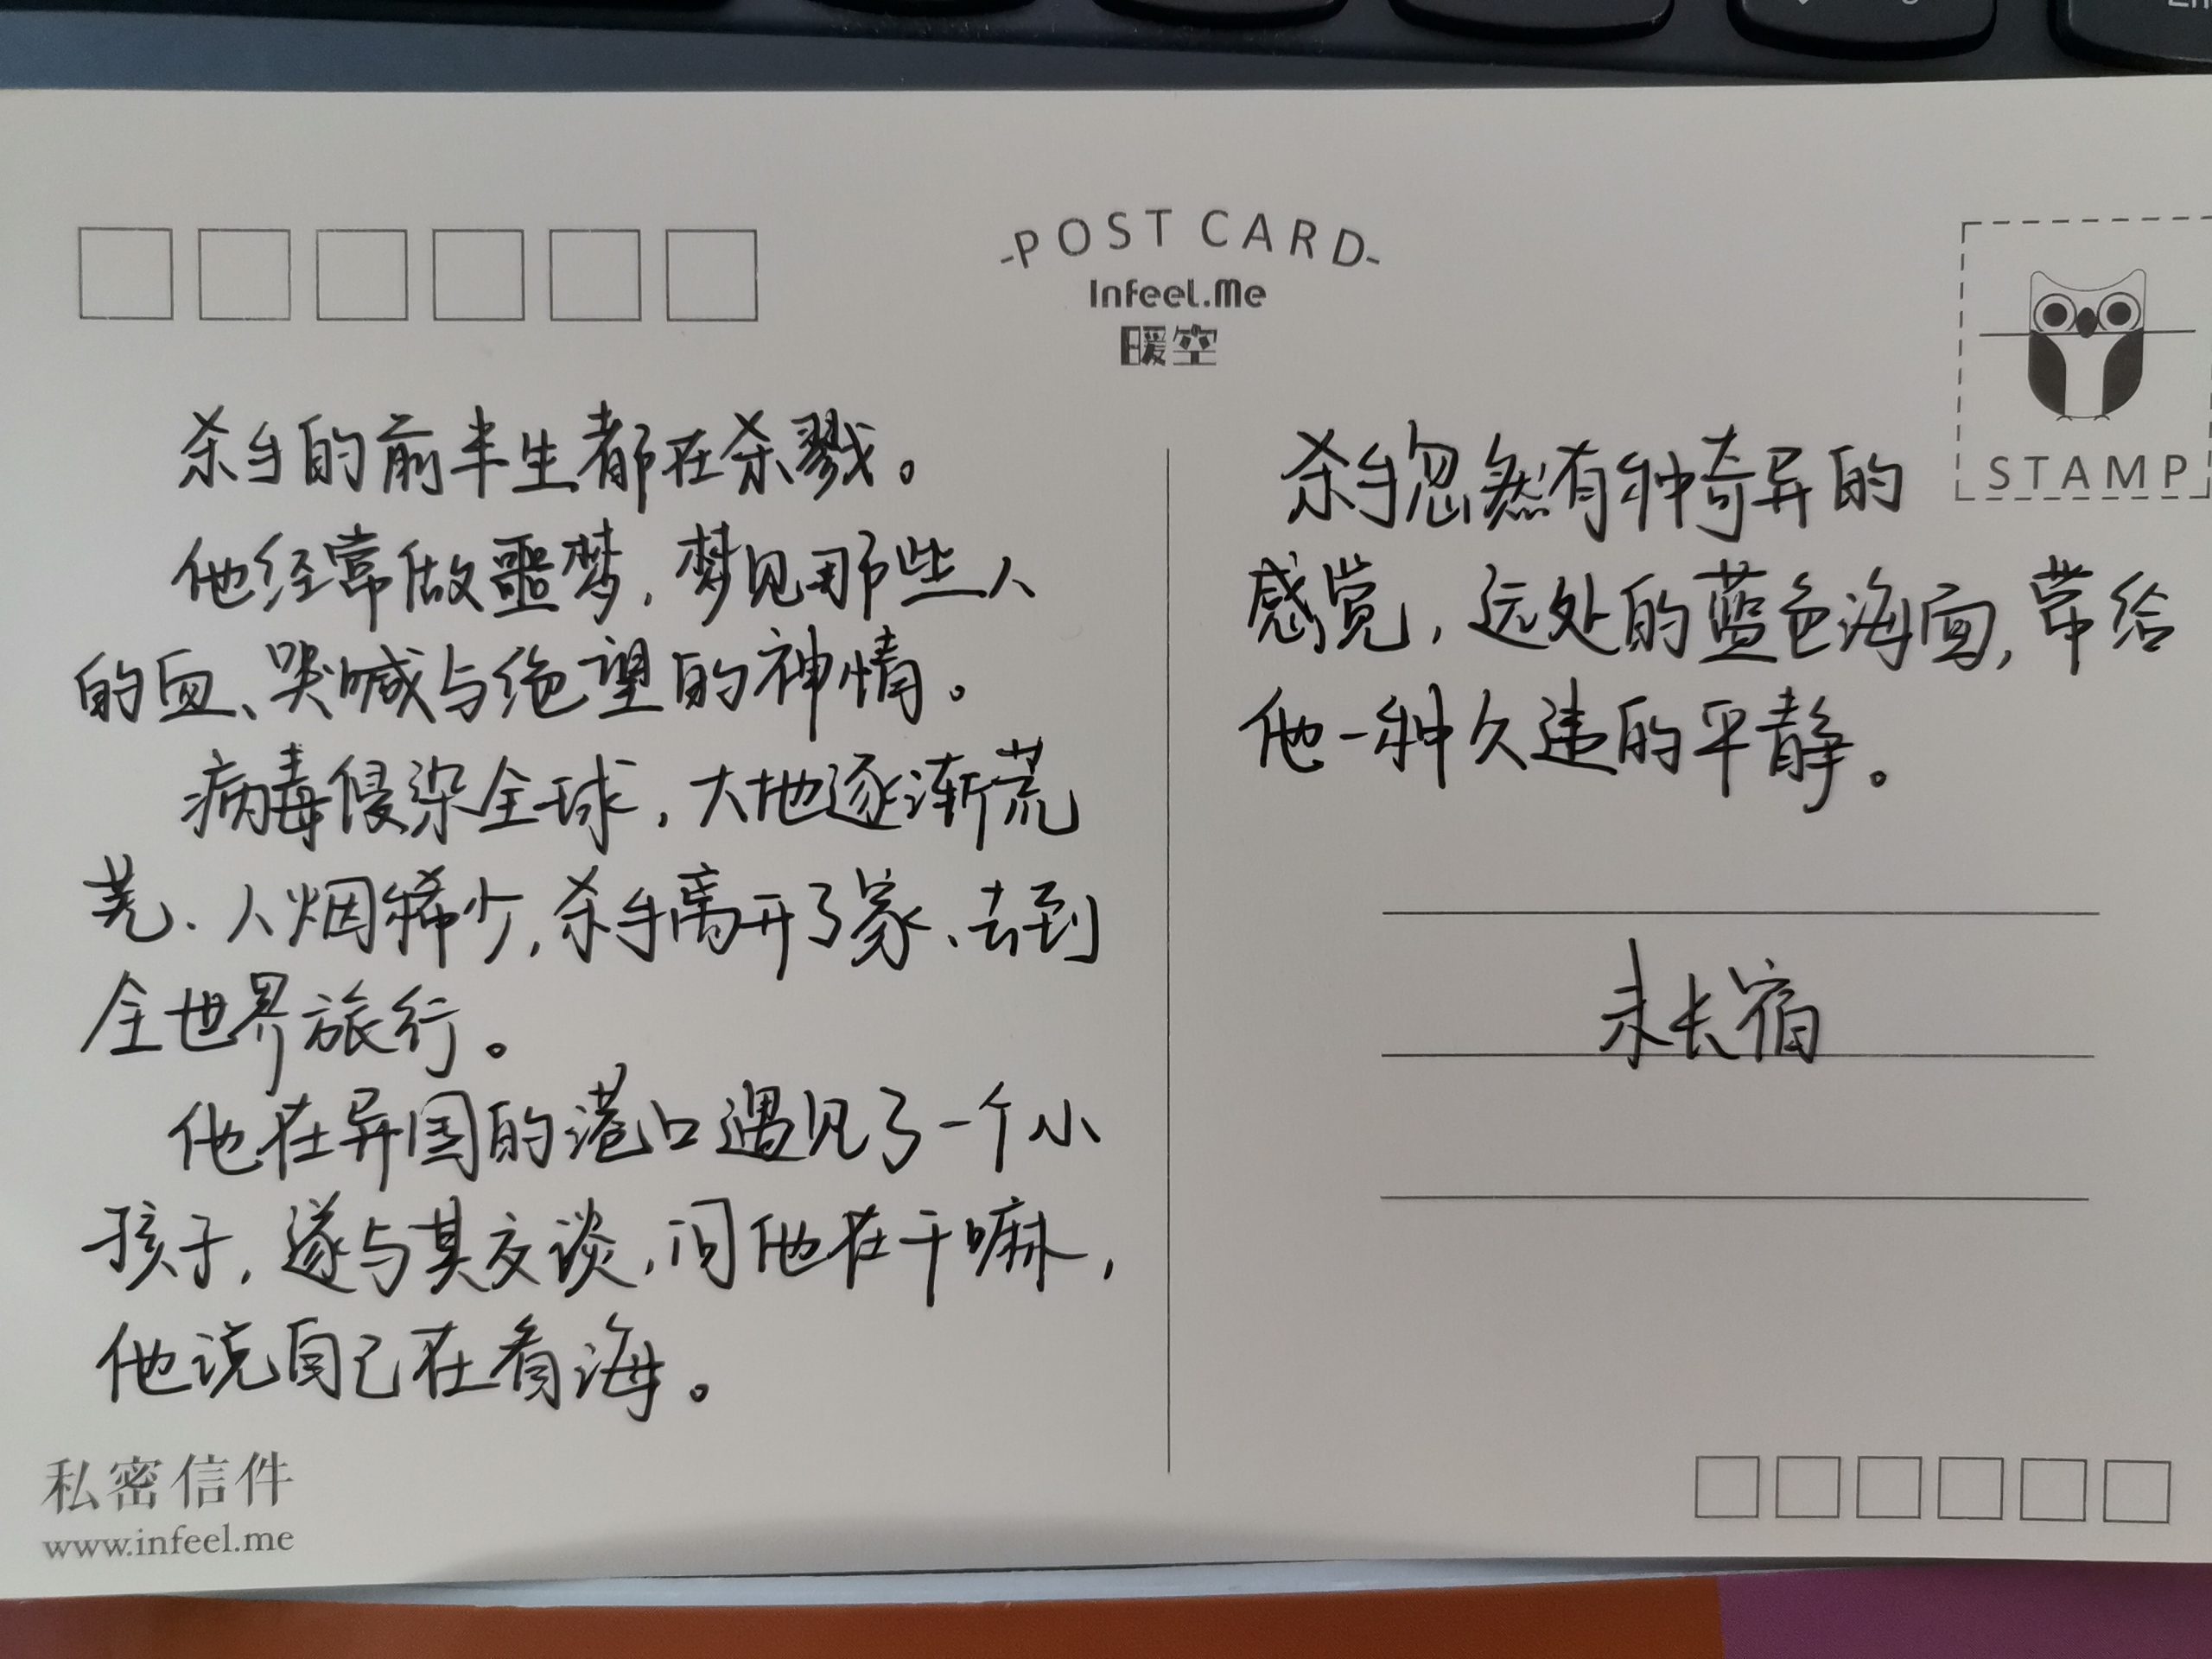 -POST CARD-
Infeel.Me
暖空
STAMP
杀手的前半生都在杀戮。
他经常做噩梦，梦见那些人
的血、哭喊与绝望的神情。
病毒侵染全球，大地逐渐荒
芜、人烟稀少，杀手离开了家、去到
全世界旅行。
他在异国的港口遇见了一个小
孩子，遂与其交谈，问他在干嘛，
他说自己在看海。
杀手忽然有种奇异的
感觉，远处的蓝色海面，带给
他一种久违的平静。
未长宿
私密信件
www.infeel.me